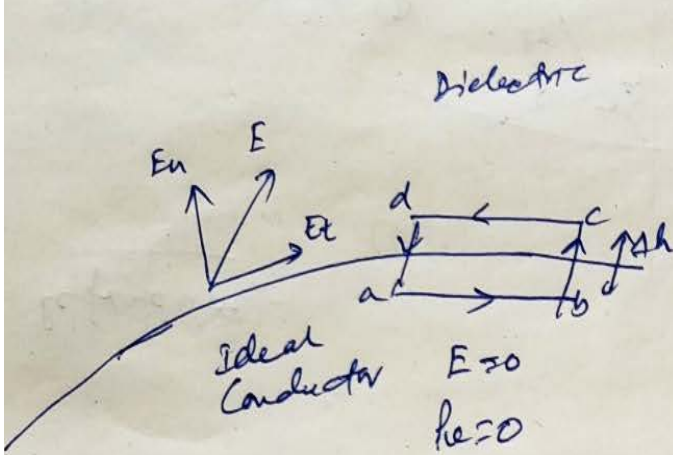 Dielectric
En
E
Et
d
c
Δh
a
b
Ideal
Conductor
E=0
ρe=0